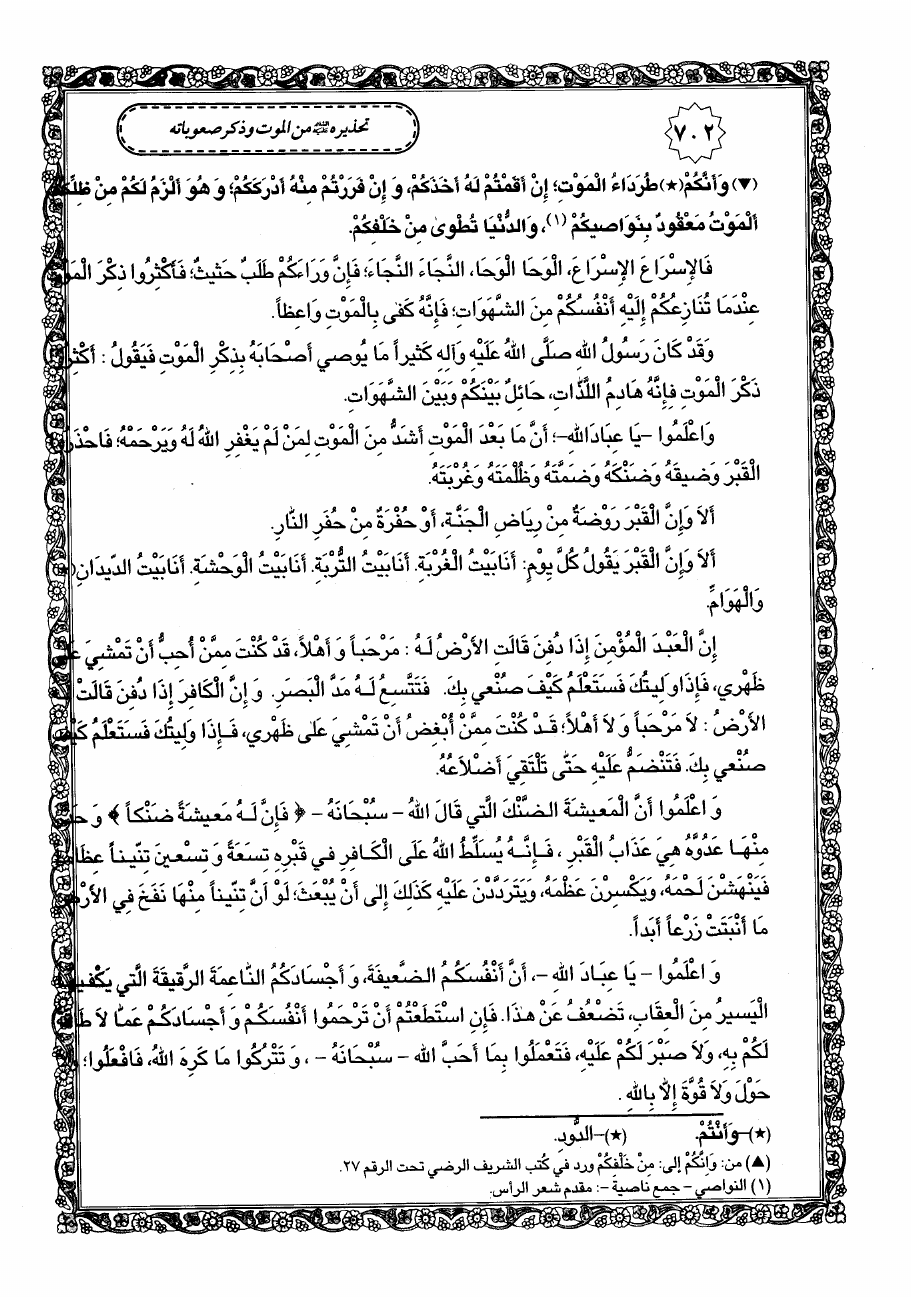 ٧٠٢
تحذيره ﷺ من الموت وذكر صعوباته
(▼) وَأَنَّكُمْ(★) طُرَدَاءُ الْمَوْتِ؛ إِنْ أَقَمْتُمْ لَهُ أَخَذَكُمْ، وَ إِنْ فَرَرْتُمْ مِنْهُ أَدْرَكَكُمْ؛ وَ هُوَ أَلْزَمُ لَكُمْ مِنْ ظِلِّكُمْ
أَلْمَوْتُ مَعْقُودٌ بِنَوَاصيكُمْ (١)، وَالدُّنْيَا تُطْوىٰ مِنْ خَلْفِكُمْ.
فَالإِسْرَاعَ الإِسْرَاعَ، الْوَحَا الْوَحَا، النَّجَاءَ النَّجَاءَ؛ فَإِنَّ وَرَاءَكُمْ طَلَبٌ حَثيثٌ؛ فَأَكْثِرُوا ذِكْرَ الْمَوْتِ
عِنْدَمَا تُنَازِعُكُمْ إِلَيْهِ أَنْفُسُكُمْ مِنَ الشَّهَوَاتِ؛ فَإِنَّهُ كَفى بِالْمَوْتِ وَاعِظاً.
وَقَدْ كَانَ رَسُولُ اللهِ صَلَّى اللهُ عَلَيْهِ وَآلِهِ كَثيراً مَا يُوصي أَصْحَابَهُ بِذِكْرِ الْمَوْتِ فَيَقُولُ : أَكْثِرُوا
ذِكْرَ الْمَوْتِ فَإِنَّهُ هَادِمُ اللَّذَّاتِ، حَائِلٌ بَيْنَكُمْ وَبَيْنَ الشَّهَوَاتِ.
وَاعْلَمُوا –يَا عِبَادَاللهِ–؛ أَنَّ مَا بَعْدَ الْمَوْتِ أَشَدُّ مِنَ الْمَوْتِ لِمَنْ لَمْ يَغْفِرِ اللهُ لَهُ وَيَرْحَمْهُ؛ فَاحْذَرُوا
الْقَبْرَ وَضيقَهُ وَضَنْكَهُ وَضَمَّتَهُ وَظُلْمَتَهُ وَغُرْبَتَهُ.
أَلاَ وَإِنَّ الْقَبْرَ رَوْضَةٌ مِنْ رِيَاضِ الْجَنَّةِ، أَوْ حُفْرَةٌ مِنْ حُفَرِ النَّارِ.
أَلاَ وَإِنَّ الْقَبْرَ يَقُولُ كُلَّ يَوْمٍ: أَنَابَيْتُ الْغُرْبَةِ. أَنَابَيْتُ التُّرْبَةِ. أَنَابَيْتُ الْوَحْشَةِ. أَنَابَيْتُ الدّيدَانِ(★)
وَالْهَوَامِّ.
إِنَّ الْعَبْدَ الْمُؤْمِنَ إِذَا دُفِنَ قَالَتِ الأَرْضُ لَهُ : مَرْحَباً وَ أَهْلاً، قَدْ كُنْتَ مِمَّنْ أُحِبُّ أَنْ تَمْشِيَ عَلىٰ
ظَهْري، فَإِذَا وَليتُكَ فَسَتَعْلَمُ كَيْفَ صُنْعي بِكَ. فَتَتَّسِعُ لَهُ مَدَّ الْبَصَرِ. وَ إِنَّ الْكَافِرَ إِذَا دُفِنَ قَالَتْ لَهُ
الأَرْضُ : لاَ مَرْحَباً وَ لاَ أَهْلاً؛ قَدْ كُنْتَ مِمَّنْ أُبْغِضُ أَنْ تَمْشِيَ عَلىٰ ظَهْري، فَإِذَا وَليتُكَ فَسَتَعْلَمُ كَيْفَ
صُنْعي بِكَ. فَتَنْضَمُّ عَلَيْهِ حَتّىٰ تَلْتَقِيَ أَضْلاَعُهُ.
وَ اعْلَمُوا أَنَّ الْمَعيشَةَ الضَّنْكَ الَّتي قَالَ اللهُ – سُبْحَانَهُ – ﴿ فَإِنَّ لَهُ مَعيشَةً ضَنْكاً ﴾ وَ حَذَّرَ
مِنْهَا عَدُوَّهُ هِيَ عَذَابُ الْقَبْرِ ، فَإِنَّهُ يُسَلِّطُ اللهُ عَلَى الْكَافِرِ في قَبْرِهِ تِسْعَةً وَ تِسْعينَ تِنّيناً عِظَاماً
فَيَنْهَشْنَ لَحْمَهُ، وَيَكْسِرْنَ عَظْمَهُ، وَيَتَرَدَّدْنَ عَلَيْهِ كَذَلِكَ إِلى أَنْ يُبْعَثَ؛ لَوْ أَنَّ تِنّيناً مِنْهَا نَفَخَ فِي الأَرْضِ
مَا أَنْبَتَتْ زَرْعاً أَبَداً.
وَ اعْلَمُوا – يَا عِبَادَ اللهِ –، أَنَّ أَنْفُسَكُمُ الضَّعيفَةَ، وَ أَجْسَادَكُمُ النَّاعِمَةَ الرَّقيقَةَ الَّتي يَكْفيهَا
الْيَسيرُ مِنَ الْعِقَابِ، تَضْعُفُ عَنْ هٰذَا. فَإِنِ اسْتَطَعْتُمْ أَنْ تَرْحَمُوا أَنْفُسَكُمْ وَ أَجْسَادَكُمْ عَمّا لاَ طَاقَةَ
لَكُمْ بِهِ، وَلاَ صَبْرَ لَكُمْ عَلَيْهِ، فَتَعْمَلُوا بِمَا أَحَبَّ اللهُ – سُبْحَانَهُ – ، وَ تَتْرُكُوا مَا كَرِهَ اللهُ، فَافْعَلُوا؛ وَلاَ
حَوْلَ وَلاَ قُوَّةَ إِلاّ بِاللهِ .
(★)–وَأَنْتُمْ. (★)–الدُّودِ.
(▲) من: وَأَنَّكُمْ إلى: مِنْ خَلْفِكُمْ ورد في كتب الشريف الرضي تحت الرقم ٢٧.
(١) النواصي – جمع ناصية –: مقدم شعر الرأس.